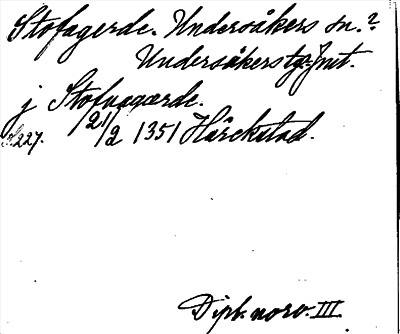 Stofagerde. Undersåkers sn.?
Undersåkers tg. Jmt.
j Stofnagærde.
S. 227. 12/2 1351 Hårckstad.
Dipl. norv. III.